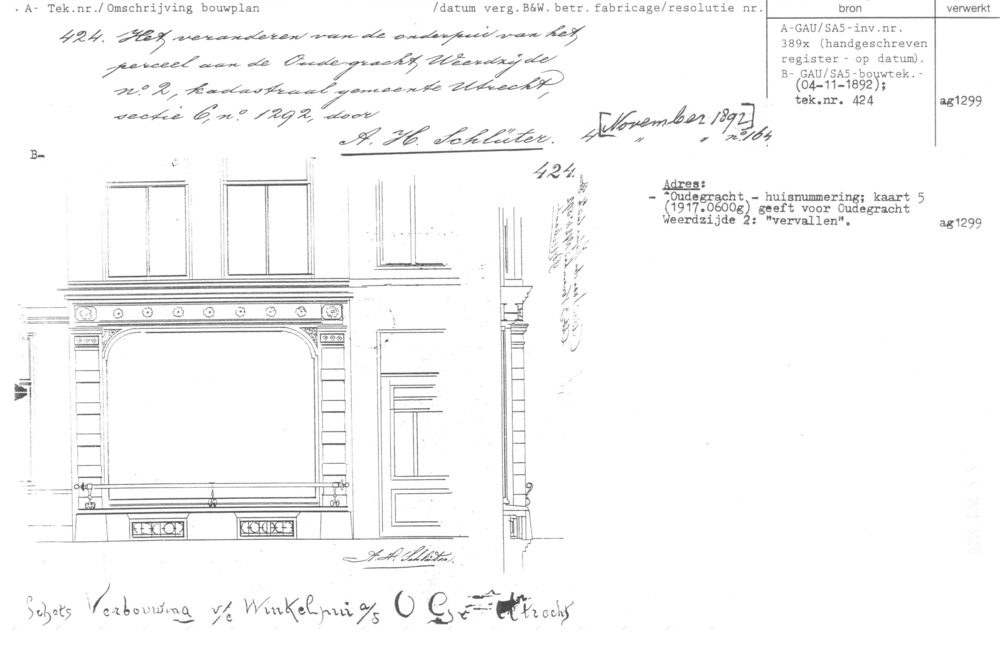 A- Tek.nr./Omschrijving bouwplan /datum verg.B&W.betr.fabricage/resolutie nr. bron verwerkt
424. Het veranderen van de onderpui van het
perceel aan de Oude gracht Weerdzijde
no 2, kadastraal gemeente Utrecht,
sectie C, no 1292, door
A. H. Schlüter.
4 [November 1892]
" " no 164.
A-GAU/SA5-inv.nr.
389x (handgeschreven
register - op datum).
B- GAU/SA5-bouwtek.-
(04-11-1892);
tek.nr. 424 ag1299
B-
424.
Adres:
- Oudegracht - huisnummering; kaart 5
(1917.0600g) geeft voor Oudegracht
Weerdzijde 2: "vervallen". ag1299
A. H. Schlüter.
Schets Verbouwing v/e Winkelpui a/s O G Utrecht